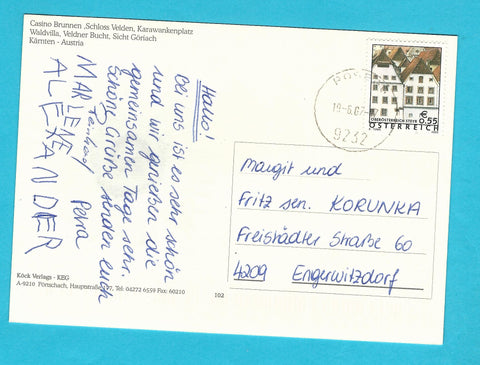 Casino Brunnen ,Schloss Velden, Karawankenplatz
Waldvilla, Veldner Bucht, Sicht Göriach
Kärnten - Austria
Hallo!
Bei uns ist es sehr schön
und wir genießen die
gemeinsamen Tage sehr.
Schöne Grüße senden euch
MARLENE Petra
ALEXANDER
Köck Verlags - KEG
A-9210 Pörtschach, Hauptstraße Tel: 04272 6559 Fax: 60210
102
9232
€ 0,55
OBERÖSTERREICH STEYR
ÖSTERREICH
Margit und
Fritz sen. KORUNKA
Freistädter Straße 60
4209 Engerwitzdorf